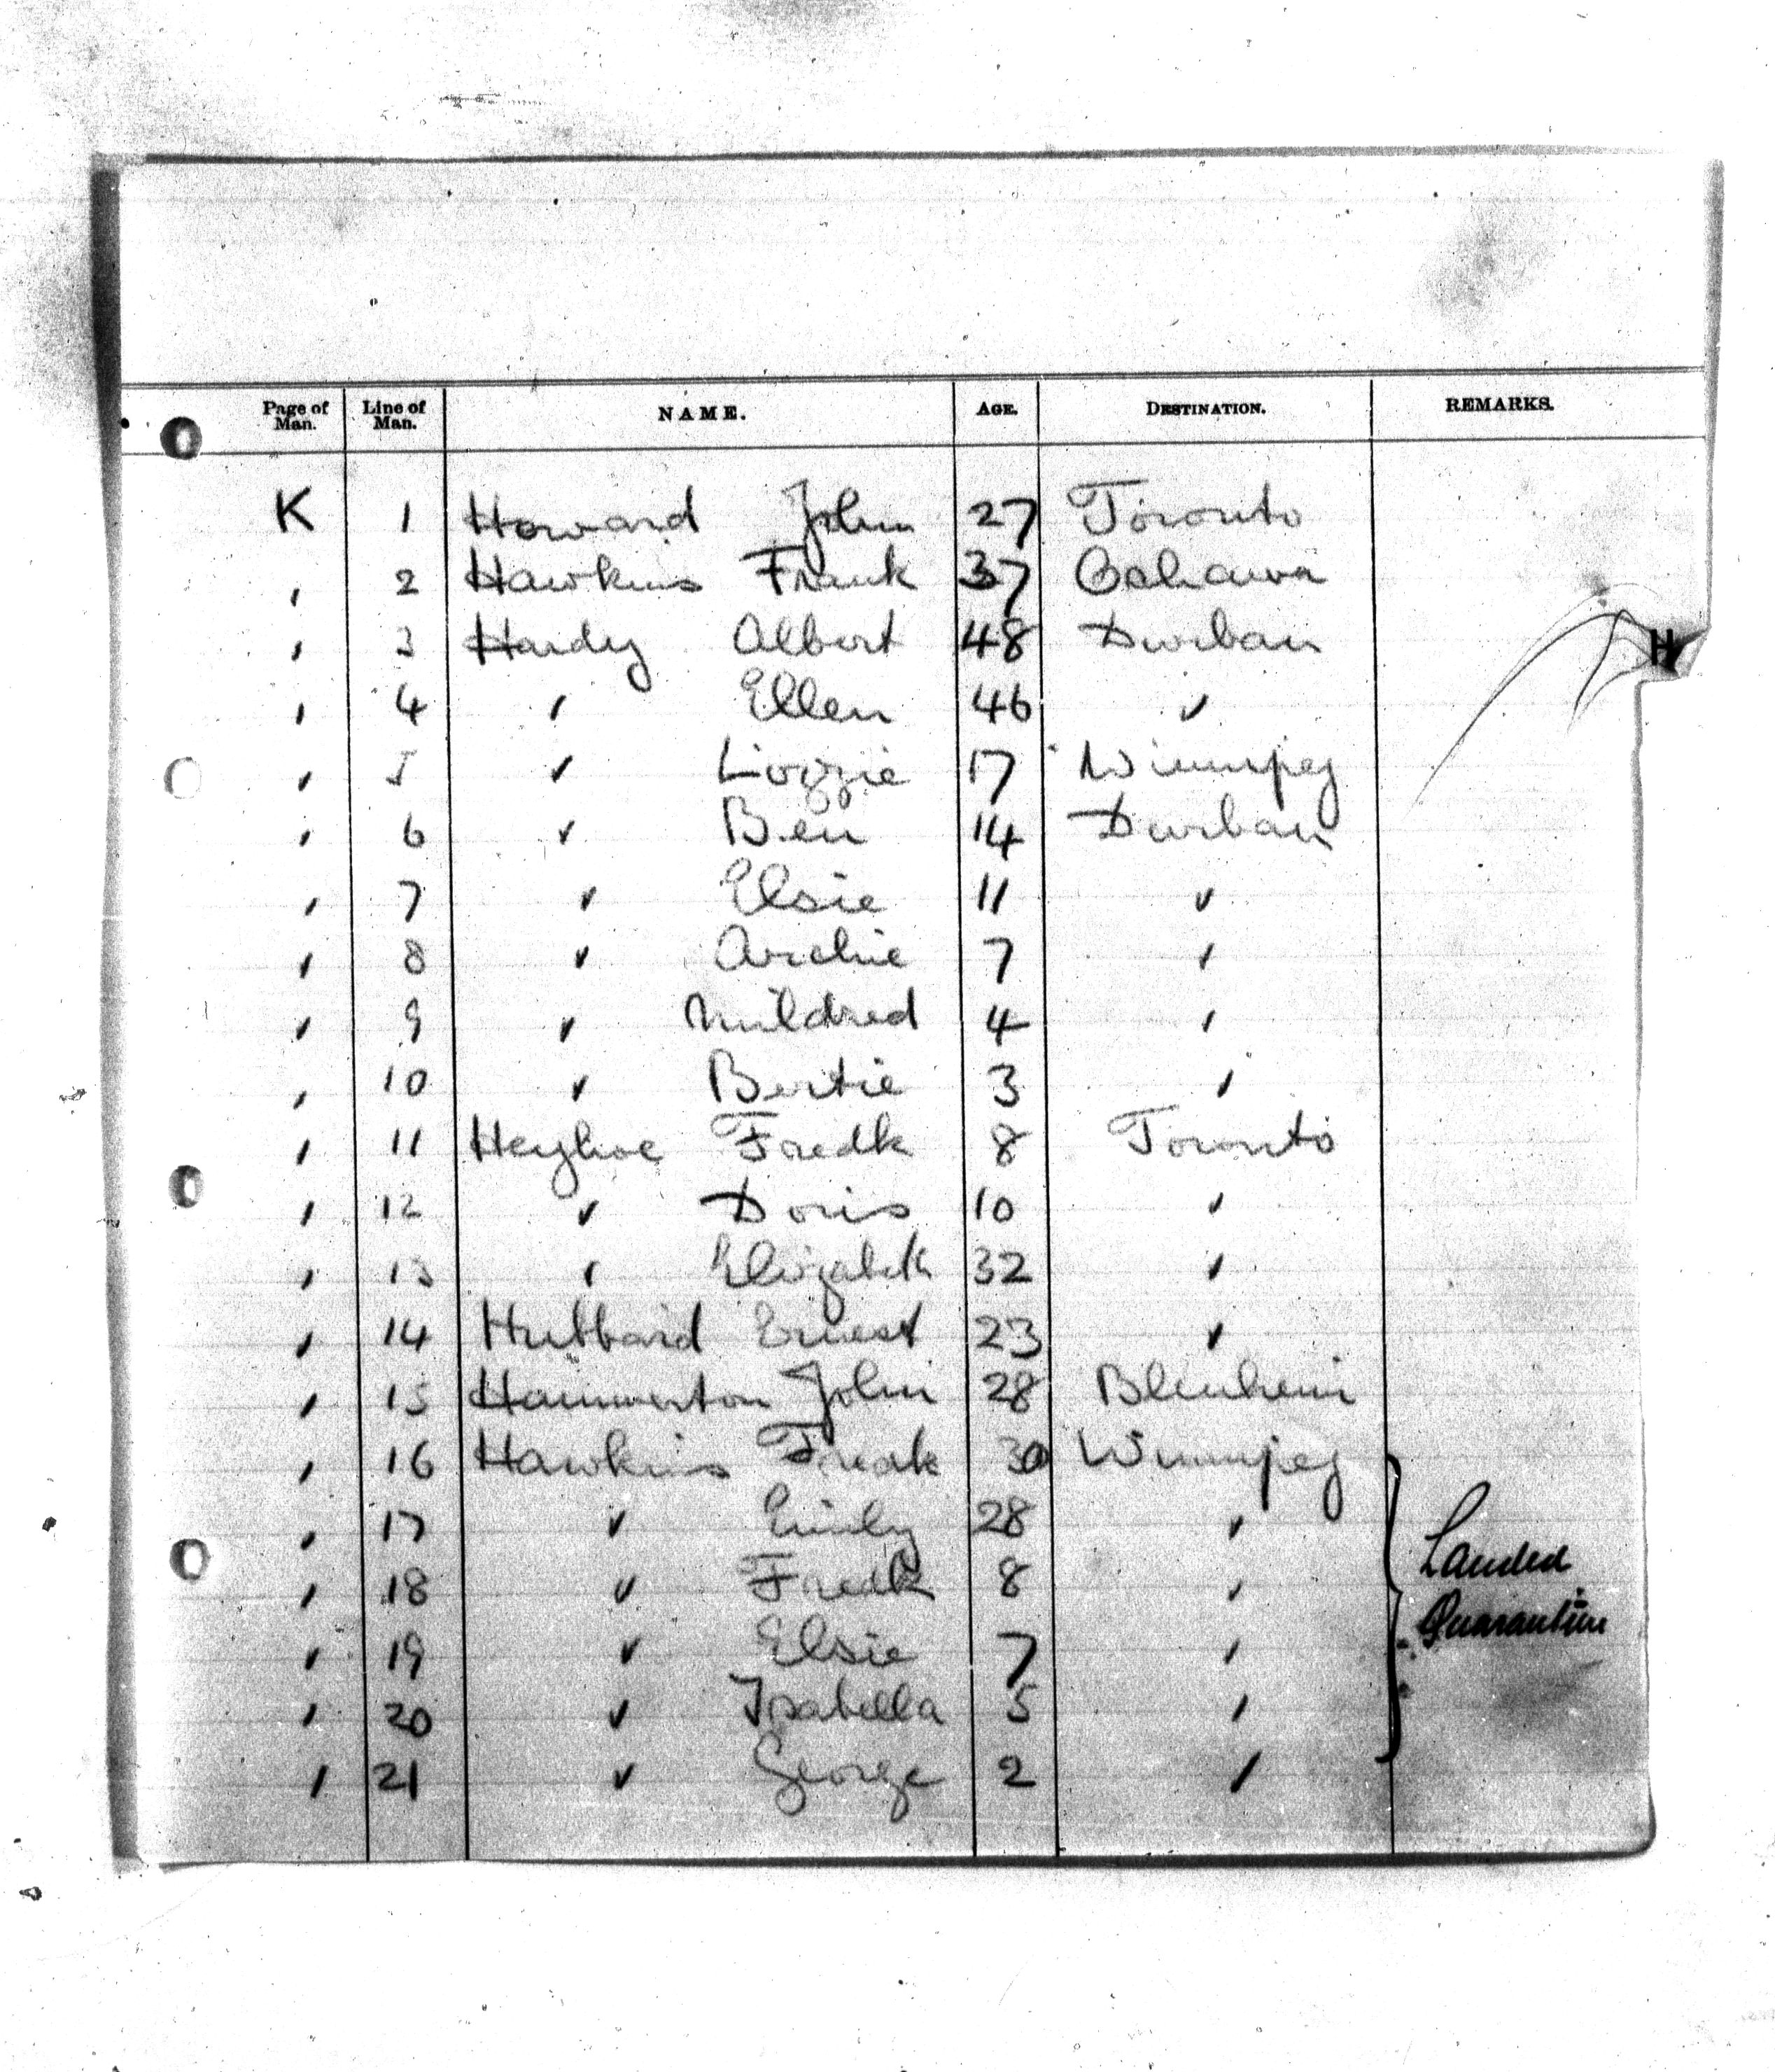 Page of Man. Line of Man. NAME. AGE. DESTINATION. REMARKS.
K 1 Howard John 27 Toronto
" 2 Hawkins Frank 37 Oshawa
" 3 Hardy Albert 48 Durban
H
" 4 " Ellen 46 "
" 5 " Lizzie 17 Winnipeg
" 6 " Ben 14 Durban
" 7 " Elsie 11 "
" 8 " Archie 7 "
" 9 " Mildred 4 "
" 10 " Bertie 3 "
" 11 Heyhoe Fredk 8 Toronto
" 12 " Doris 10 "
" 13 " Elizabeth 32 "
" 14 Hubbard Ernest 23 "
" 15 Hammerton John 28 Blenheim
" 16 Hawkins Fredk 30 Winnipeg
" 17 " Emily 28 "
" 18 " Fredk 8 "
Landed
Quarantine
" 19 " Elsie 7 "
" 20 " Isabella 5 "
" 21 " George 2 "